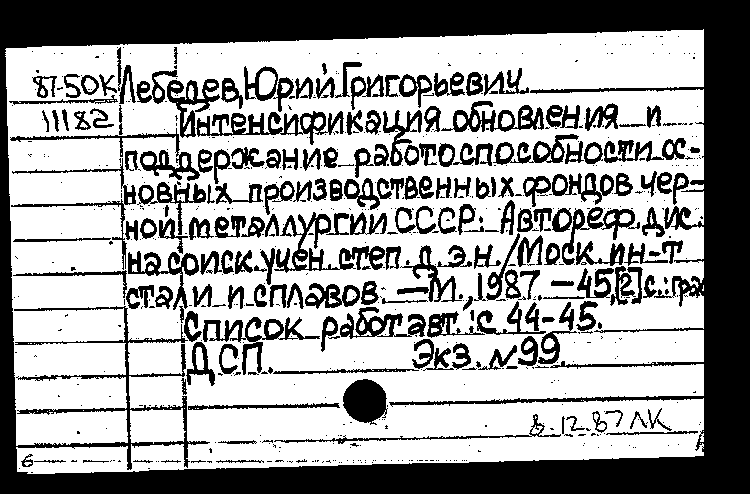 87-50К Лебедев, Юрий Григорьевич.
11182 Интенсификация обновления и
поддержание работоспособности ос-
новных производственных фондов чер-
ной металлургии СССР: Автореф. дис.
на соиск. учен. степ. д.э.н. / Моск. ин-т
стали и сплавов. — М., 1987. — 45,[2] с.: граф
Список работ авт.: с. 44-45.
ДСП. Экз. N99.
8.12.87 ЛК
6